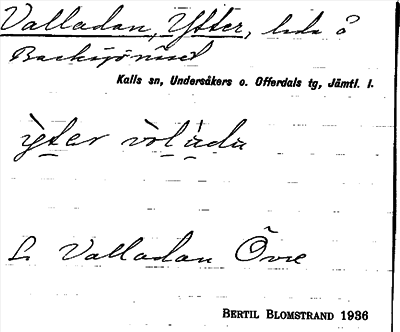 Valladan, Ytter, lada å
Backsjönäset
Kalls sn, Undersåkers o. Offerdals tg, Jämtl. l.
ỳter
Se Valladan Övre
BERTIL BLOMSTRAND 1936